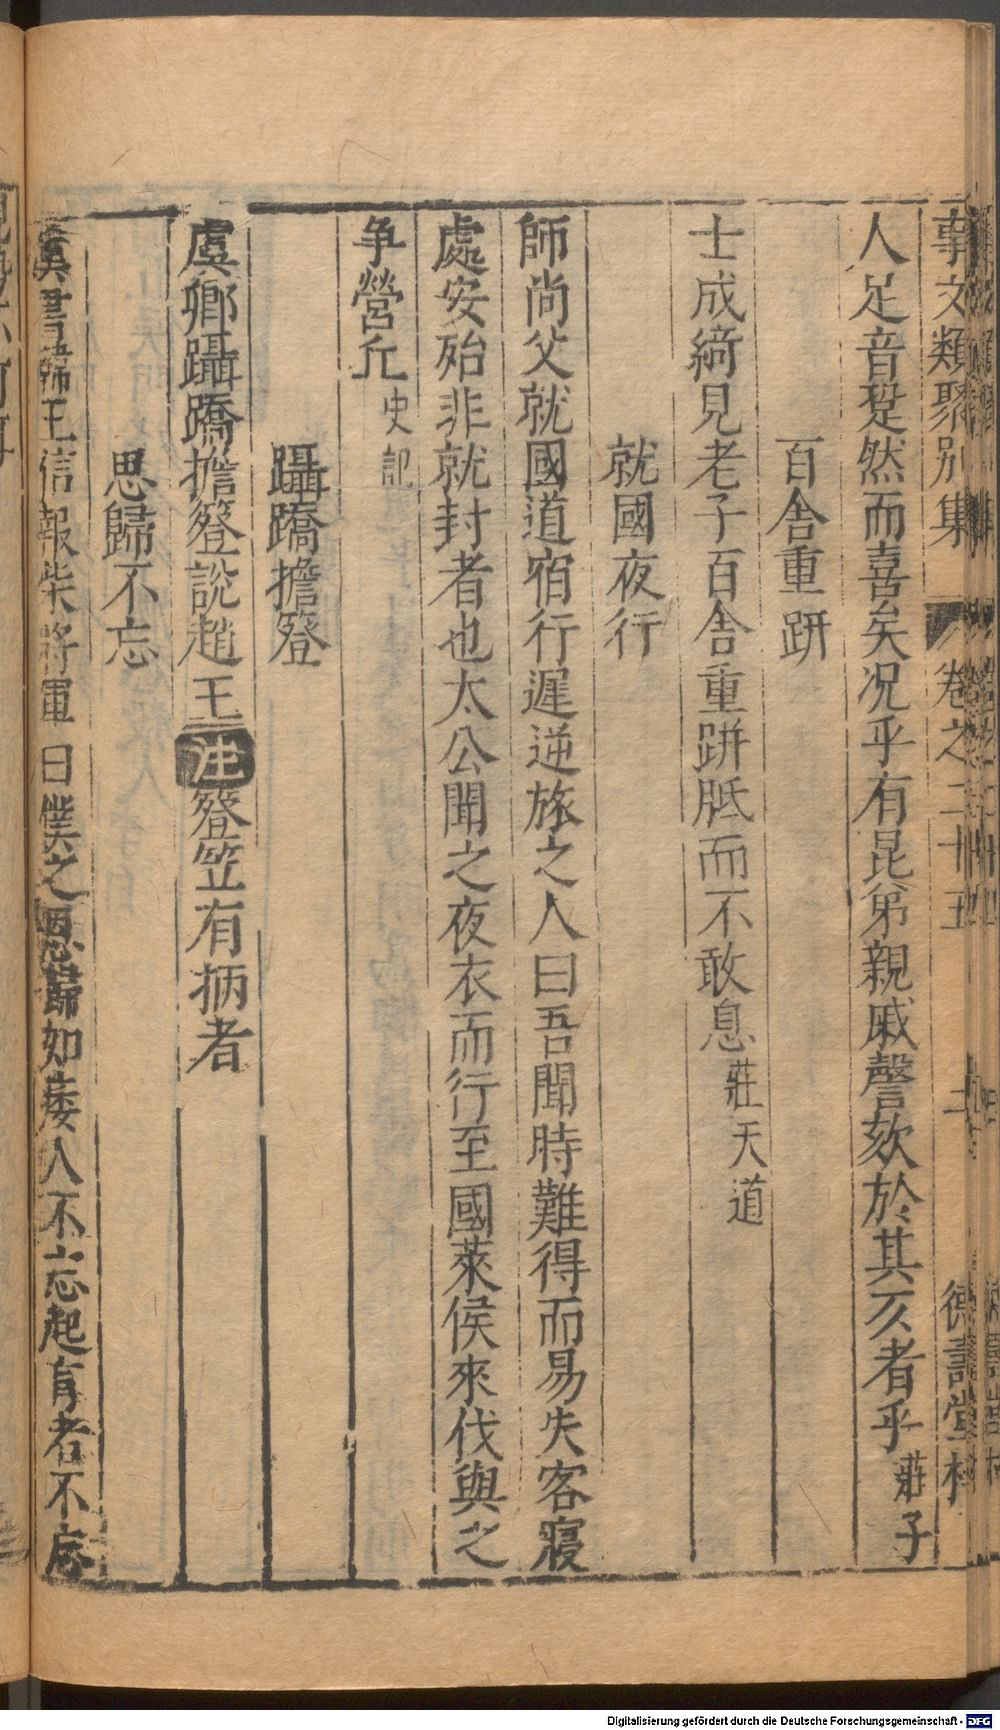 事文類聚別集 卷之二十五 二 德壽堂梓
人足音跫然而喜矣况乎有昆弟親戚謦欬於其仄者乎莊子
百舍重趼
士成綺見老子百舍重趼胝而不敢息莊天道
就國夜行
師尚父就國道宿行遲逆旅之人曰吾聞時難得而易失客寢
處安殆非就封者也太公聞之夜衣而行至國萊侯來伐與之
爭營丘史記
躡蹻擔簦
虞卿躡蹻擔簦說趙王注簦笠有柄者
思歸不忘
漢書韓王信報柴將軍曰僕之思歸如痿人不忘起盲者不忘
Digitalisierung gefördert durch die Deutsche Forschungsgemeinschaft - DFG